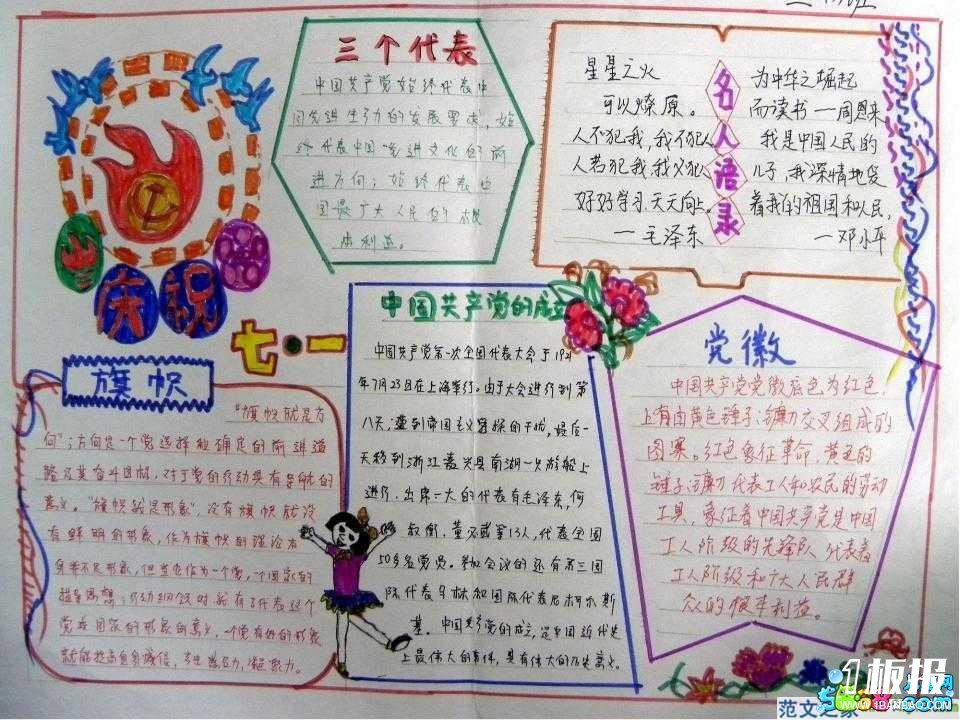 三
班
庆祝
七·一
三个代表
中国共产党始终代表中
国先进生产力的发展要求，始
终代表中国先进文化的前
进方向；始终代表中
国最广大人民的根
本利益。
星星之火
可以燎原。
人不犯我，我不犯人
人若犯我，我必犯人
好好学习，天天向上。
—毛泽东
名人语录
为中华之崛起
而读书—周恩来
我是中国人民的
儿子，我深情地爱
着我的祖国和人民，
—邓小平
旗帜
"旗帜就是方
向"；方向是一个党选择和确定的前进道
路及其奋斗目标，对于党的行动具有导航的
意义。"旗帜就是形象"，没有旗帜就没
有鲜明的形象，作为旗帜的理论本
身并不是形象，但当它作为一个党、一个国家的
指导思想、行动纲领时就有了代表这个
党和国家的形象的意义，一个党有好的形象
就能提高自身威信，
中国共产党的成立
中国共产党第一次全国代表大会于1921
年7月23日在上海举行。由于大会进行到第
八天，遭到帝国主义暗探的干扰，最后一
天移到浙江嘉兴县南湖一只游船上
进行。出席一大的代表有毛泽东，何
叔衡，董必武等13人，代表全国
50多名党员。参加会议的还有第三国
际代表马林和国际代表尼柯尔斯
基。中国共产党的成立，是中国近代史
上最伟大的事件，具有伟大的历史意义。
党徽
中国共产党党徽底色为红色
上有由黄色锤子、镰刀交叉组成的
图案。红色象征革命，黄色的
锤子、镰刀代表工人和农民的劳动
工具，象征着中国共产党是中国
工人阶级的先锋队，代表着
工人阶级和广大人民群
众的根本利益。
1板报
WWW.1BANBAO.COM
范文之家